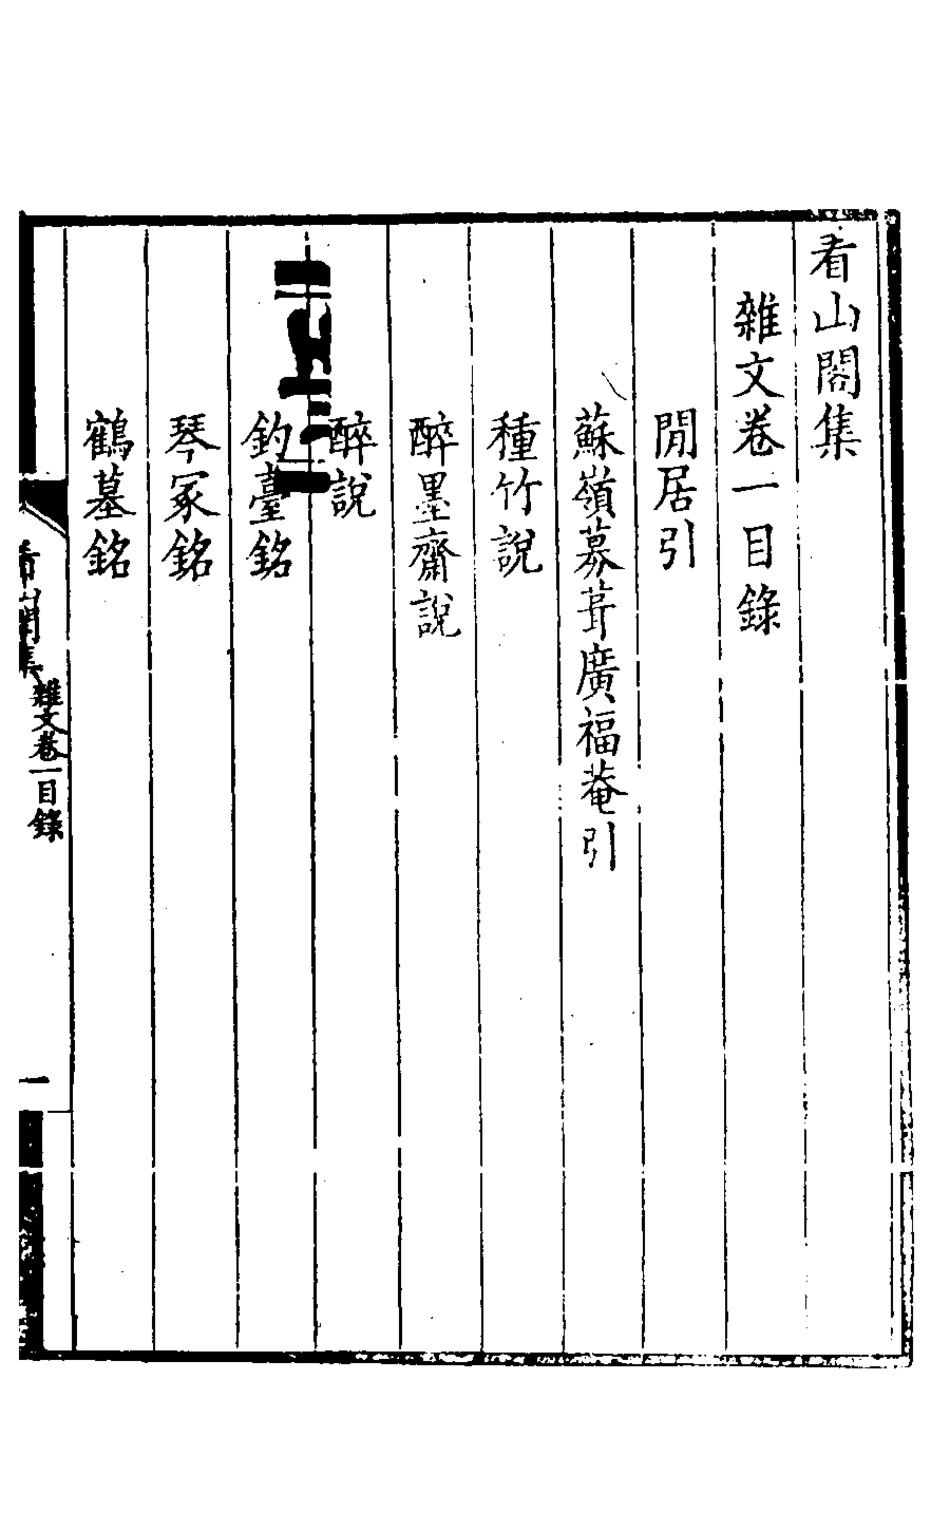 看山閣集
雜文卷一目錄
閒居引
蘇嶺募葺廣福菴引
種竹說
醉墨齋說
醉說
釣臺銘
琴冢銘
鶴墓銘
看山閣集
雜文卷一目錄
一